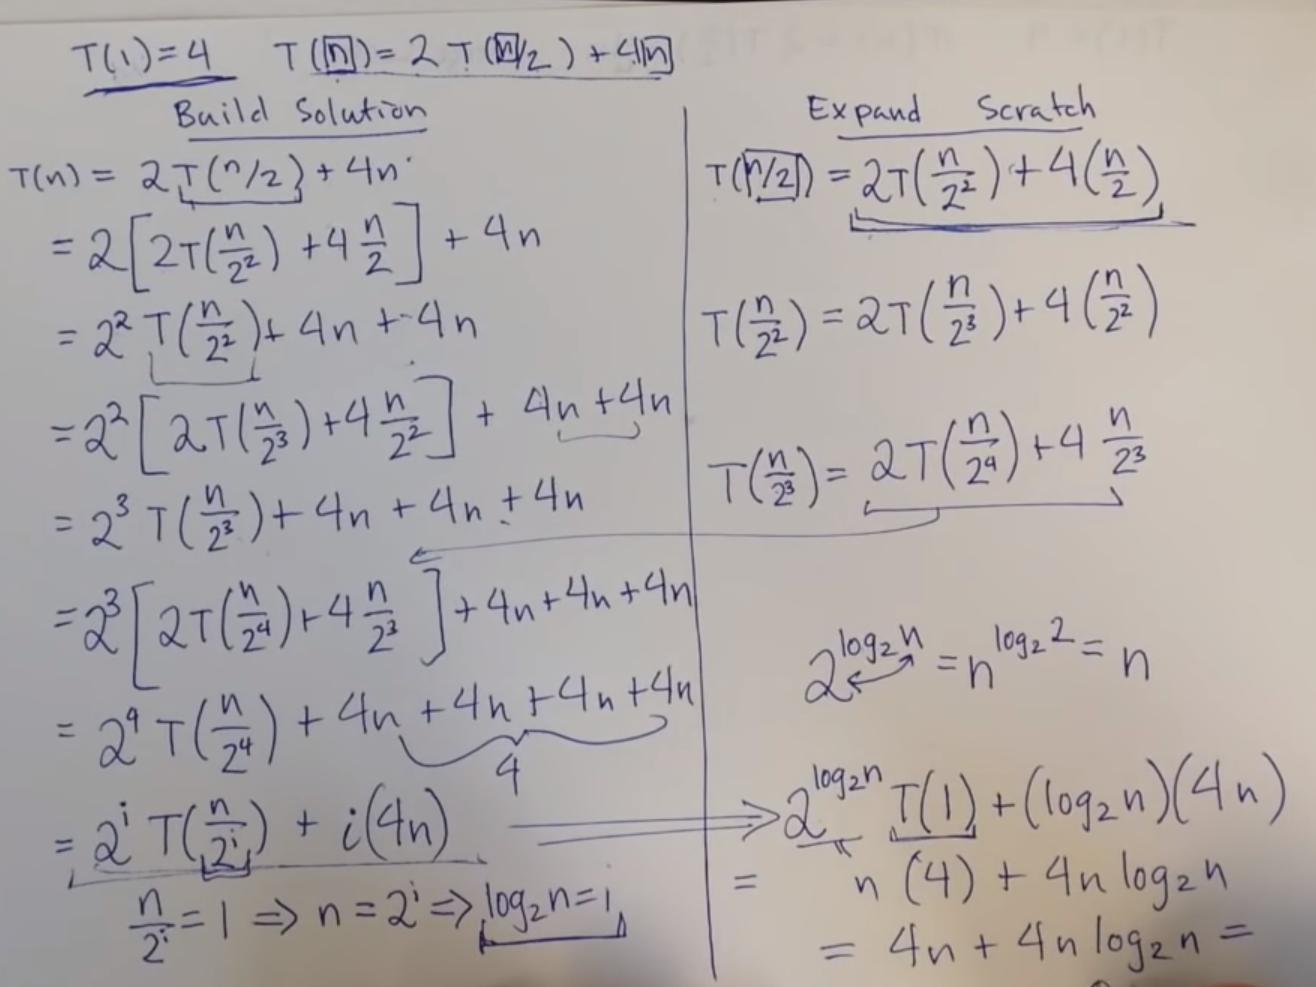 T(1)=4   T(n)=2T(n/2)+4n
Build Solution
T(n) = 2T(n/2) + 4n
= 2[2T(n/2²) + 4 n/2] + 4n
= 2² T(n/2²) + 4n + 4n
= 2²[2T(n/2³) + 4 n/2²] + 4n + 4n
= 2³ T(n/2³) + 4n + 4n + 4n
= 2³[2T(n/2⁴) + 4 n/2³] + 4n + 4n + 4n
= 2⁴ T(n/2⁴) + 4n + 4n + 4n + 4n
4
= 2ⁱ T(n/2ⁱ) + i(4n)
n/2ⁱ = 1 ⇒ n = 2ⁱ ⇒ log₂n = i
Expand Scratch
T(n/2) = 2T(n/2²) + 4(n/2)
T(n/2²) = 2T(n/2³) + 4(n/2²)
T(n/2³) = 2T(n/2⁴) + 4 n/2³
2^(log₂n) = n^(log₂2) = n
⇒ 2^(log₂n) T(1) + (log₂n)(4n)
= n(4) + 4n log₂n
= 4n + 4n log₂n =